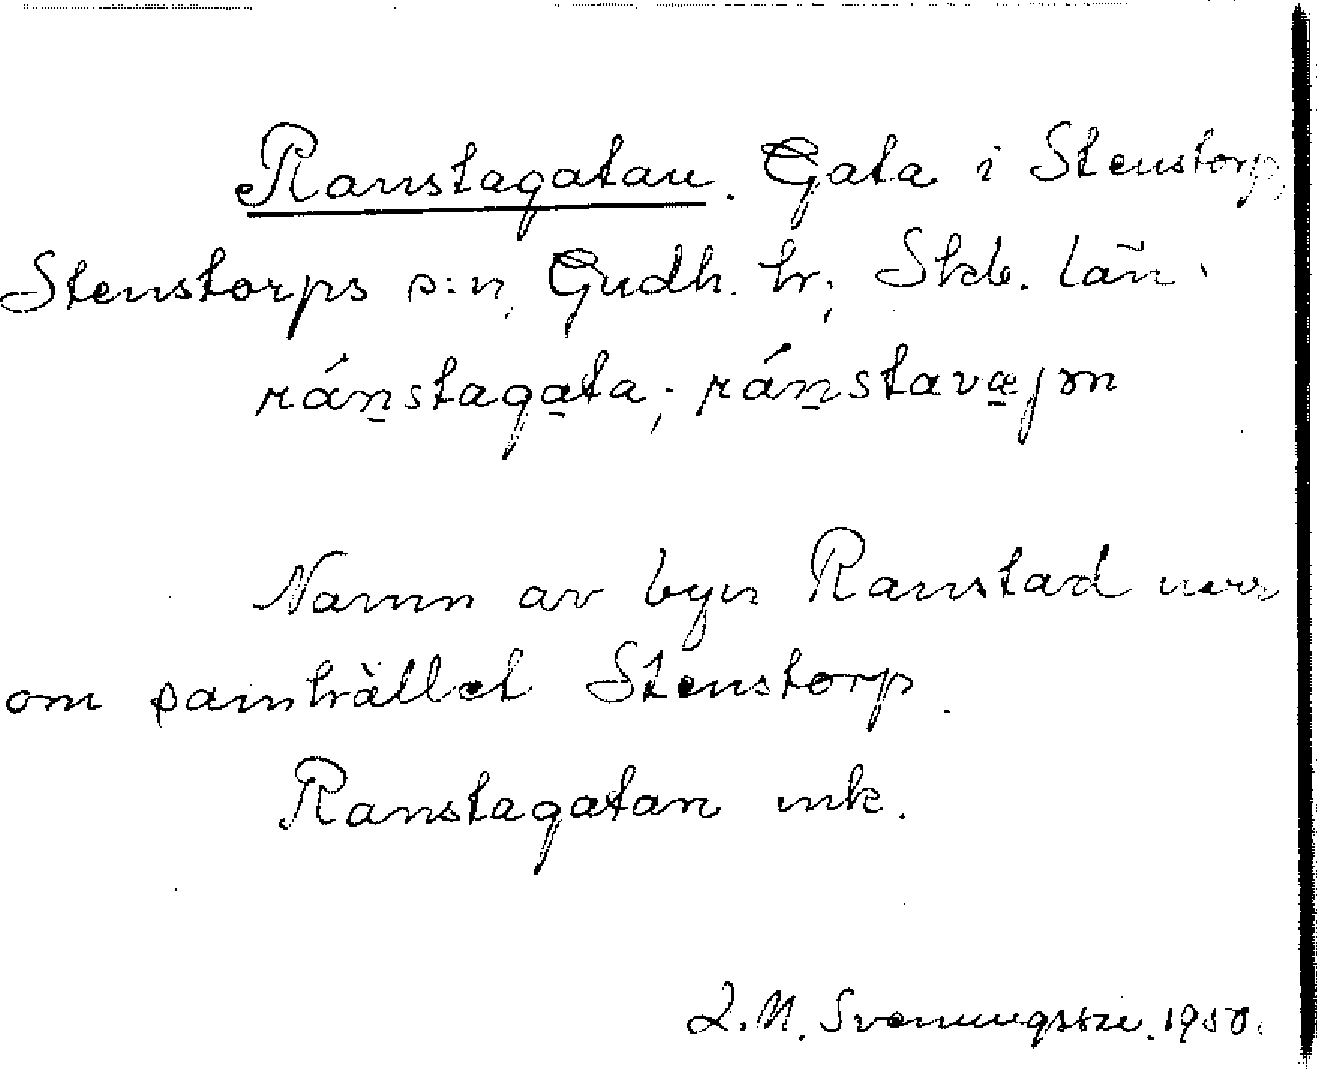 Ranstagatan. Gata i Stenstorp,
Stenstorps s:n, Gudh. hr; Skb. län.
ránstagata; ránstavæjən
Namn av byn Ranstad norr
om samhället Stenstorp.
Ranstagatan mk.
L.M. Svenungsson. 1950.